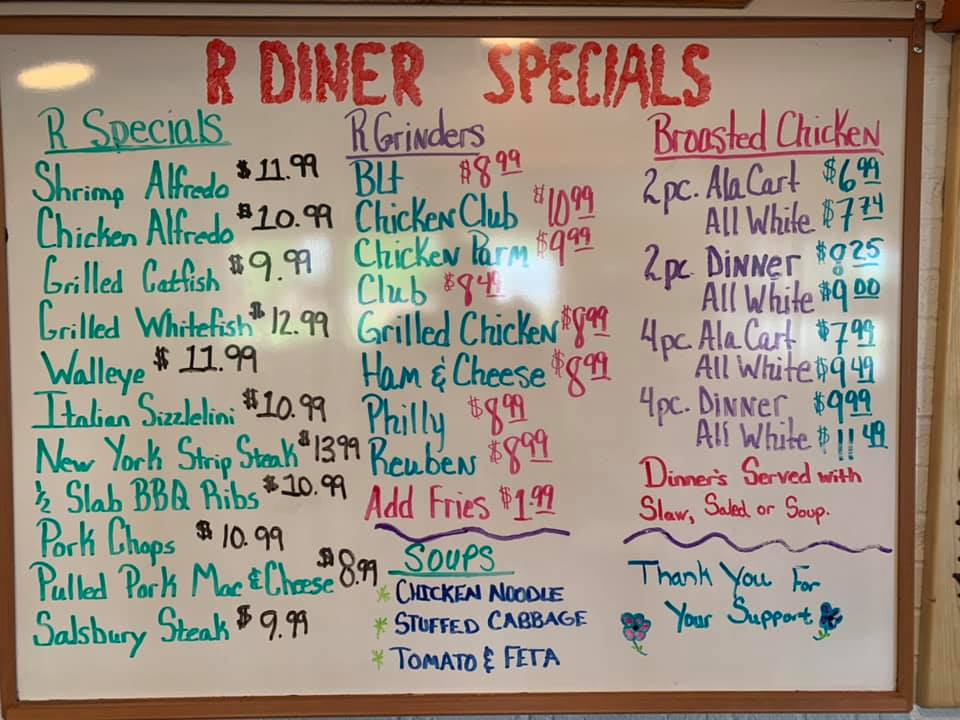 R DINER SPECIALS
R Specials
Shrimp Alfredo $11.99
Chicken Alfredo $10.99
Grilled Catfish $9.99
Grilled Whitefish $12.99
Walleye $11.99
Italian Sizzlelini $10.99
New York Strip Steak $13.99
½ Slab BBQ Ribs $10.99
Pork Chops $10.99
Pulled Pork Mac & Cheese $8.99
Salsbury Steak $9.99
R Grinders
Blt $8.99
Chicken Club $10.99
Chicken Parm $9.99
Club $8.49
Grilled Chicken $8.99
Ham & Cheese $8.99
Philly $8.99
Reuben $8.99
Add Fries $1.99
Soups
* CHICKEN NOODLE
* STUFFED CABBAGE
* TOMATO & FETA
Broasted Chicken
2pc. Ala Cart $6.99
All White $7.74
2pc. Dinner $8.25
All White $9.00
4pc. Ala Cart $7.99
All White $9.49
4pc. Dinner $9.99
All White $11.49
Dinner's Served with
Slaw, Salad or Soup.
Thank You For
Your Support